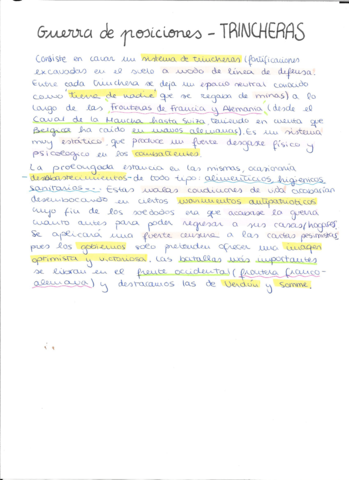 Guerra de posiciones - TRINCHERAS
Consiste en cavar un sistema de trincheras (fortificaciones
excavadas en el suelo a modo de línea de defensa).
Entre cada trinchera se deja un espacio neutral conocido
como "tierra de nadie" que se regaba de minas) a lo
largo de las fronteras de Francia y Alemania (desde el
Canal de la Mancha hasta Suiza teniendo en cuenta que
Bélgica ha caído en manos alemanas). Es un sistema
muy estático, que produce un fuerte desgaste físico y
psicológico en los combatientes.
La prolongada estancia en las mismas, ocasionaría
desabastecimientos de todo tipo: alimenticios, higiénicos,
sanitarios... Estas malas condiciones de vida
desembocando en ciertos movimientos antipatrióticos
cuyo fin de los soldados era que acabase la guerra
cuanto antes para poder regresar a sus casas/hogares.
Se aplicará una fuerte censura a las cartas pesimistas
pues los gobiernos solo pretendían ofrecer una imagen
optimista y victoriosa. Las batallas más importantes
se libran en el frente occidental (frontera franco-
alemana) y destacamos las de Verdún y Somme.